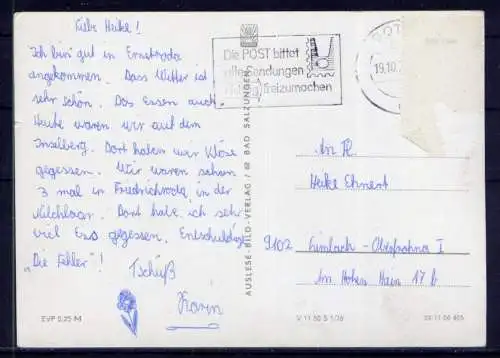 Liebe Heike!
Ich bin gut in Ernstroda
angekommen. Dass Wetter ist
sehr schön. Das Essen auch.
Heute waren wir auf dem
Inselberg. Dort haben wir Klöse
gegessen. Wir waren schon
3 mal in Friedrichroda, in der
Milchbar. Dort habe ich sehr
viel Eis gegessen. Entschuldige
"Die Fehler"!
Tschüß
Karin
EVP 0,25 M
AUSLESE-BILD-VERLAG / 62 BAD SALZUNGEN
Die POST bittet
alle Sendungen
freizumachen
19.10.
An
Heike Ehnert
9102 Limbach - Oberfrohna I
Am Hohen Hain 17 b
V 11 50 S 1/76